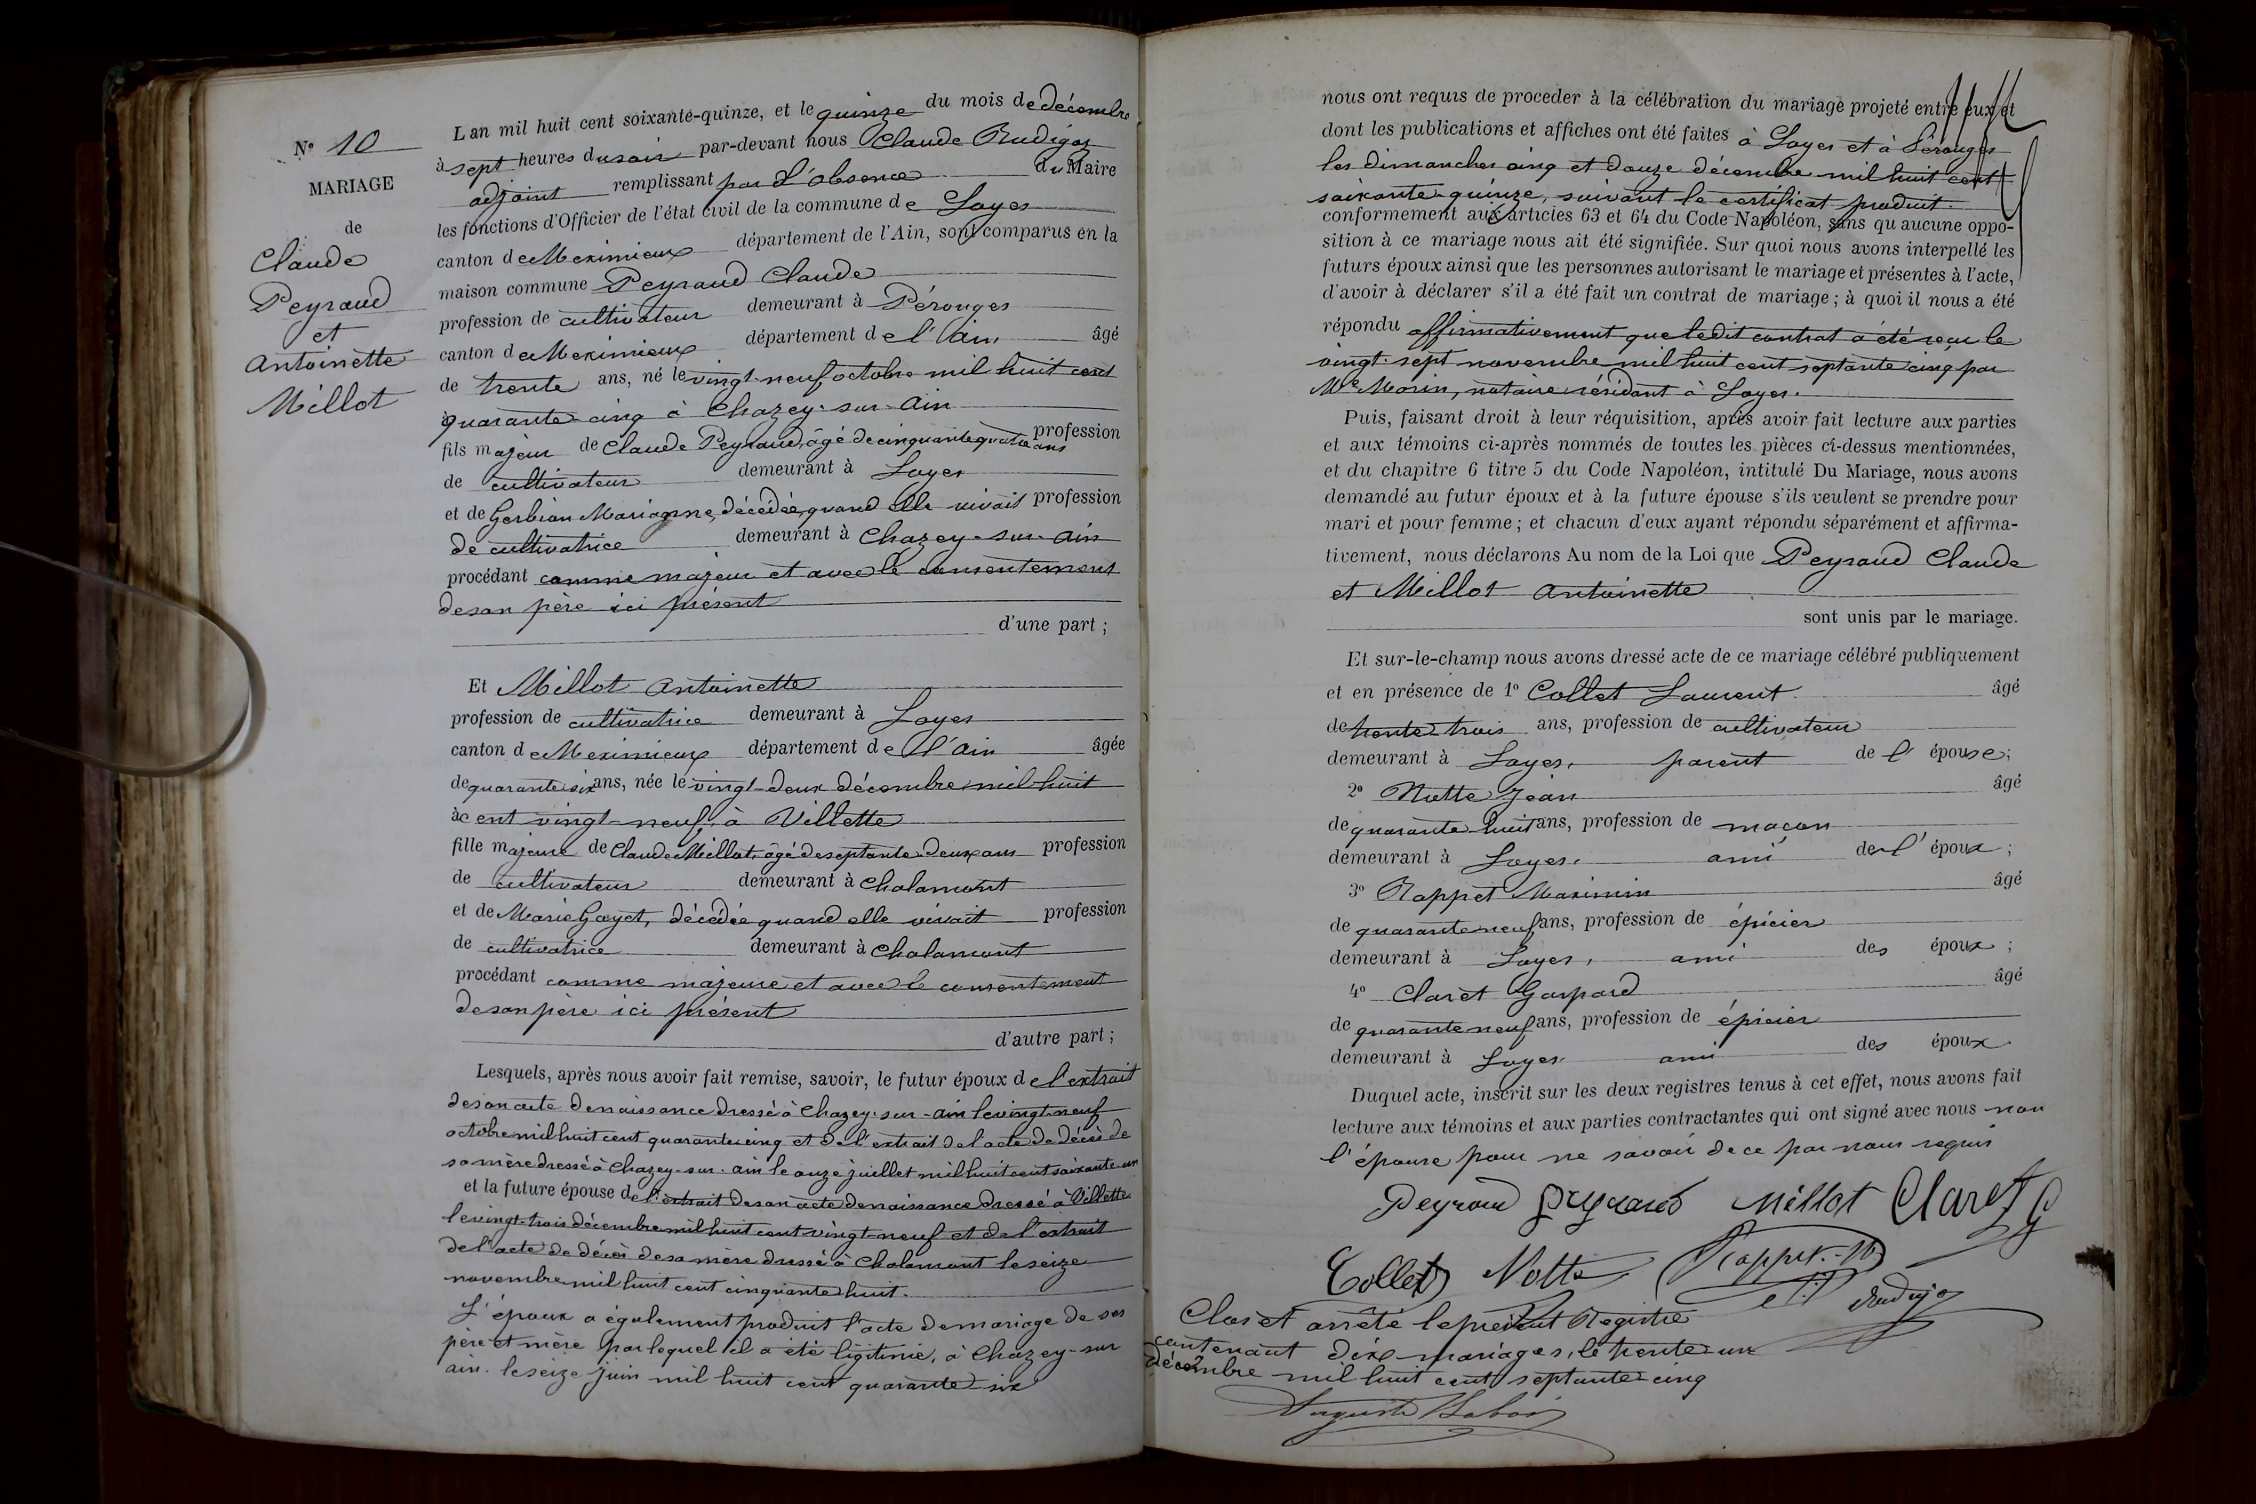 N° 10
MARIAGE
de
Claude
Peyraud
et
Antoinette
Millot
L'an mil huit cent soixante-quinze, et le quinze du mois de décembre
à sept heures du soir par-devant nous Claude Rudigoz
adjoint remplissant par d'absence du Maire
les fonctions d'Officier de l'état civil de la commune de Loyes
canton de Meximieux département de l'Ain, sont comparus en la
maison commune Peyraud Claude
profession de cultivateur demeurant à Pérouges
canton de Meximieux département de l'Ain, âgé
de trente ans, né le vingt-neuf octobre mil huit cent
quarante-cinq à Chazey-sur-Ain
fils majeur de Claude Peyraud, âgé de cinquante quatre ans profession
de cultivateur demeurant à Loyes
et de Gerbian Marianne, décédée, quand elle vivait profession
de cultivatrice demeurant à Chazey-sur-Ain
procédant comme majeur et avec le consentement
de son père ici présent
d'une part ;
Et Millot Antoinette
profession de cultivatrice demeurant à Loyes
canton de Meximieux département de l'Ain âgée
de quarante six ans, née le vingt-deux décembre mil huit
cent vingt-neuf, à Villette
fille majeure de Claude Millot, âgé de septante deux ans profession
de cultivateur demeurant à Chalamont
et de Marie Gayet, décédée quand elle vivait profession
de cultivatrice demeurant à Chalamont
procédant comme majeure et avec le consentement
de son père ici présent
d'autre part ;
Lesquels, après nous avoir fait remise, savoir, le futur époux de l'extrait
de son acte de naissance dressé à Chazey-sur-Ain le vingt-neuf
octobre mil huit cent quarante cinq et de l'extrait de l'acte de décès de
sa mère dressé à Chazey-sur-Ain le onze juillet mil huit cent soixante-un
et la future épouse de l'extrait de son acte de naissance dressé à Villette
le vingt-trois décembre mil huit cent vingt-neuf et de l'extrait
de l'acte de décès de sa mère dressé à Chalamont le seize
novembre mil huit cent cinquante huit.
L'époux a également produit l'acte de mariage de ses
père et mère par lequel il a été légitimé, à Chazey-sur
ain. le seize juin mil huit cent quarante-six
nous ont requis de proceder à la célébration du mariage projeté entre eux et
dont les publications et affiches ont été faites à Loyes et à Pérouges
les dimanches cinq et douze décembre mil huit cent
soixante-quinze, suivant le certificat produit.
conformement aux articles 63 et 64 du Code Napoléon, sans qu'aucune oppo-
sition à ce mariage nous ait été signifiée. Sur quoi nous avons interpellé les
futurs époux ainsi que les personnes autorisant le mariage et présentes à l'acte,
d'avoir à déclarer s'il a été fait un contrat de mariage ; à quoi il nous a été
répondu affirmativement que ledit contrat a été reçu le
vingt-sept novembre mil huit cent septante cinq par
Me Morin, notaire résidant à Loyes.
Puis, faisant droit à leur réquisition, après avoir fait lecture aux parties
et aux témoins ci-après nommés de toutes les pièces ci-dessus mentionnées,
et du chapitre 6 titre 5 du Code Napoléon, intitulé Du Mariage, nous avons
demandé au futur époux et à la future épouse s'ils veulent se prendre pour
mari et pour femme ; et chacun d'eux ayant répondu séparément et affirma-
tivement, nous déclarons Au nom de la Loi que Peyraud Claude
et Millot Antoinette
sont unis par le mariage.
Et sur-le-champ nous avons dressé acte de ce mariage célébré publiquement
et en présence de 1° Collet Laurent âgé
de trente trois ans, profession de cultivateur
demeurant à Loyes, parent de l'épouse ;
2° Notte Jean âgé
de quarante huit ans, profession de maçon
demeurant à Loyes, ami de l'époux ;
3° Rappet Maximin âgé
de quarante neuf ans, profession de épicier
demeurant à Loyes, ami des époux ;
4° Claret Gaspard âgé
de quarante neuf ans, profession de épicier
demeurant à Loyes ami des époux.
Duquel acte, inscrit sur les deux registres tenus à cet effet, nous avons fait
lecture aux témoins et aux parties contractantes qui ont signé avec nous non
l'épouse pour ne savoir de ce par nous requis
Peyraud Peyraud Millot Claret G
Collet Notte Rappet. M
Rudigoz
Clos et arrêté le présent Registre
contenant dix mariages, le trente-un
décembre mil huit cent septante-cinq